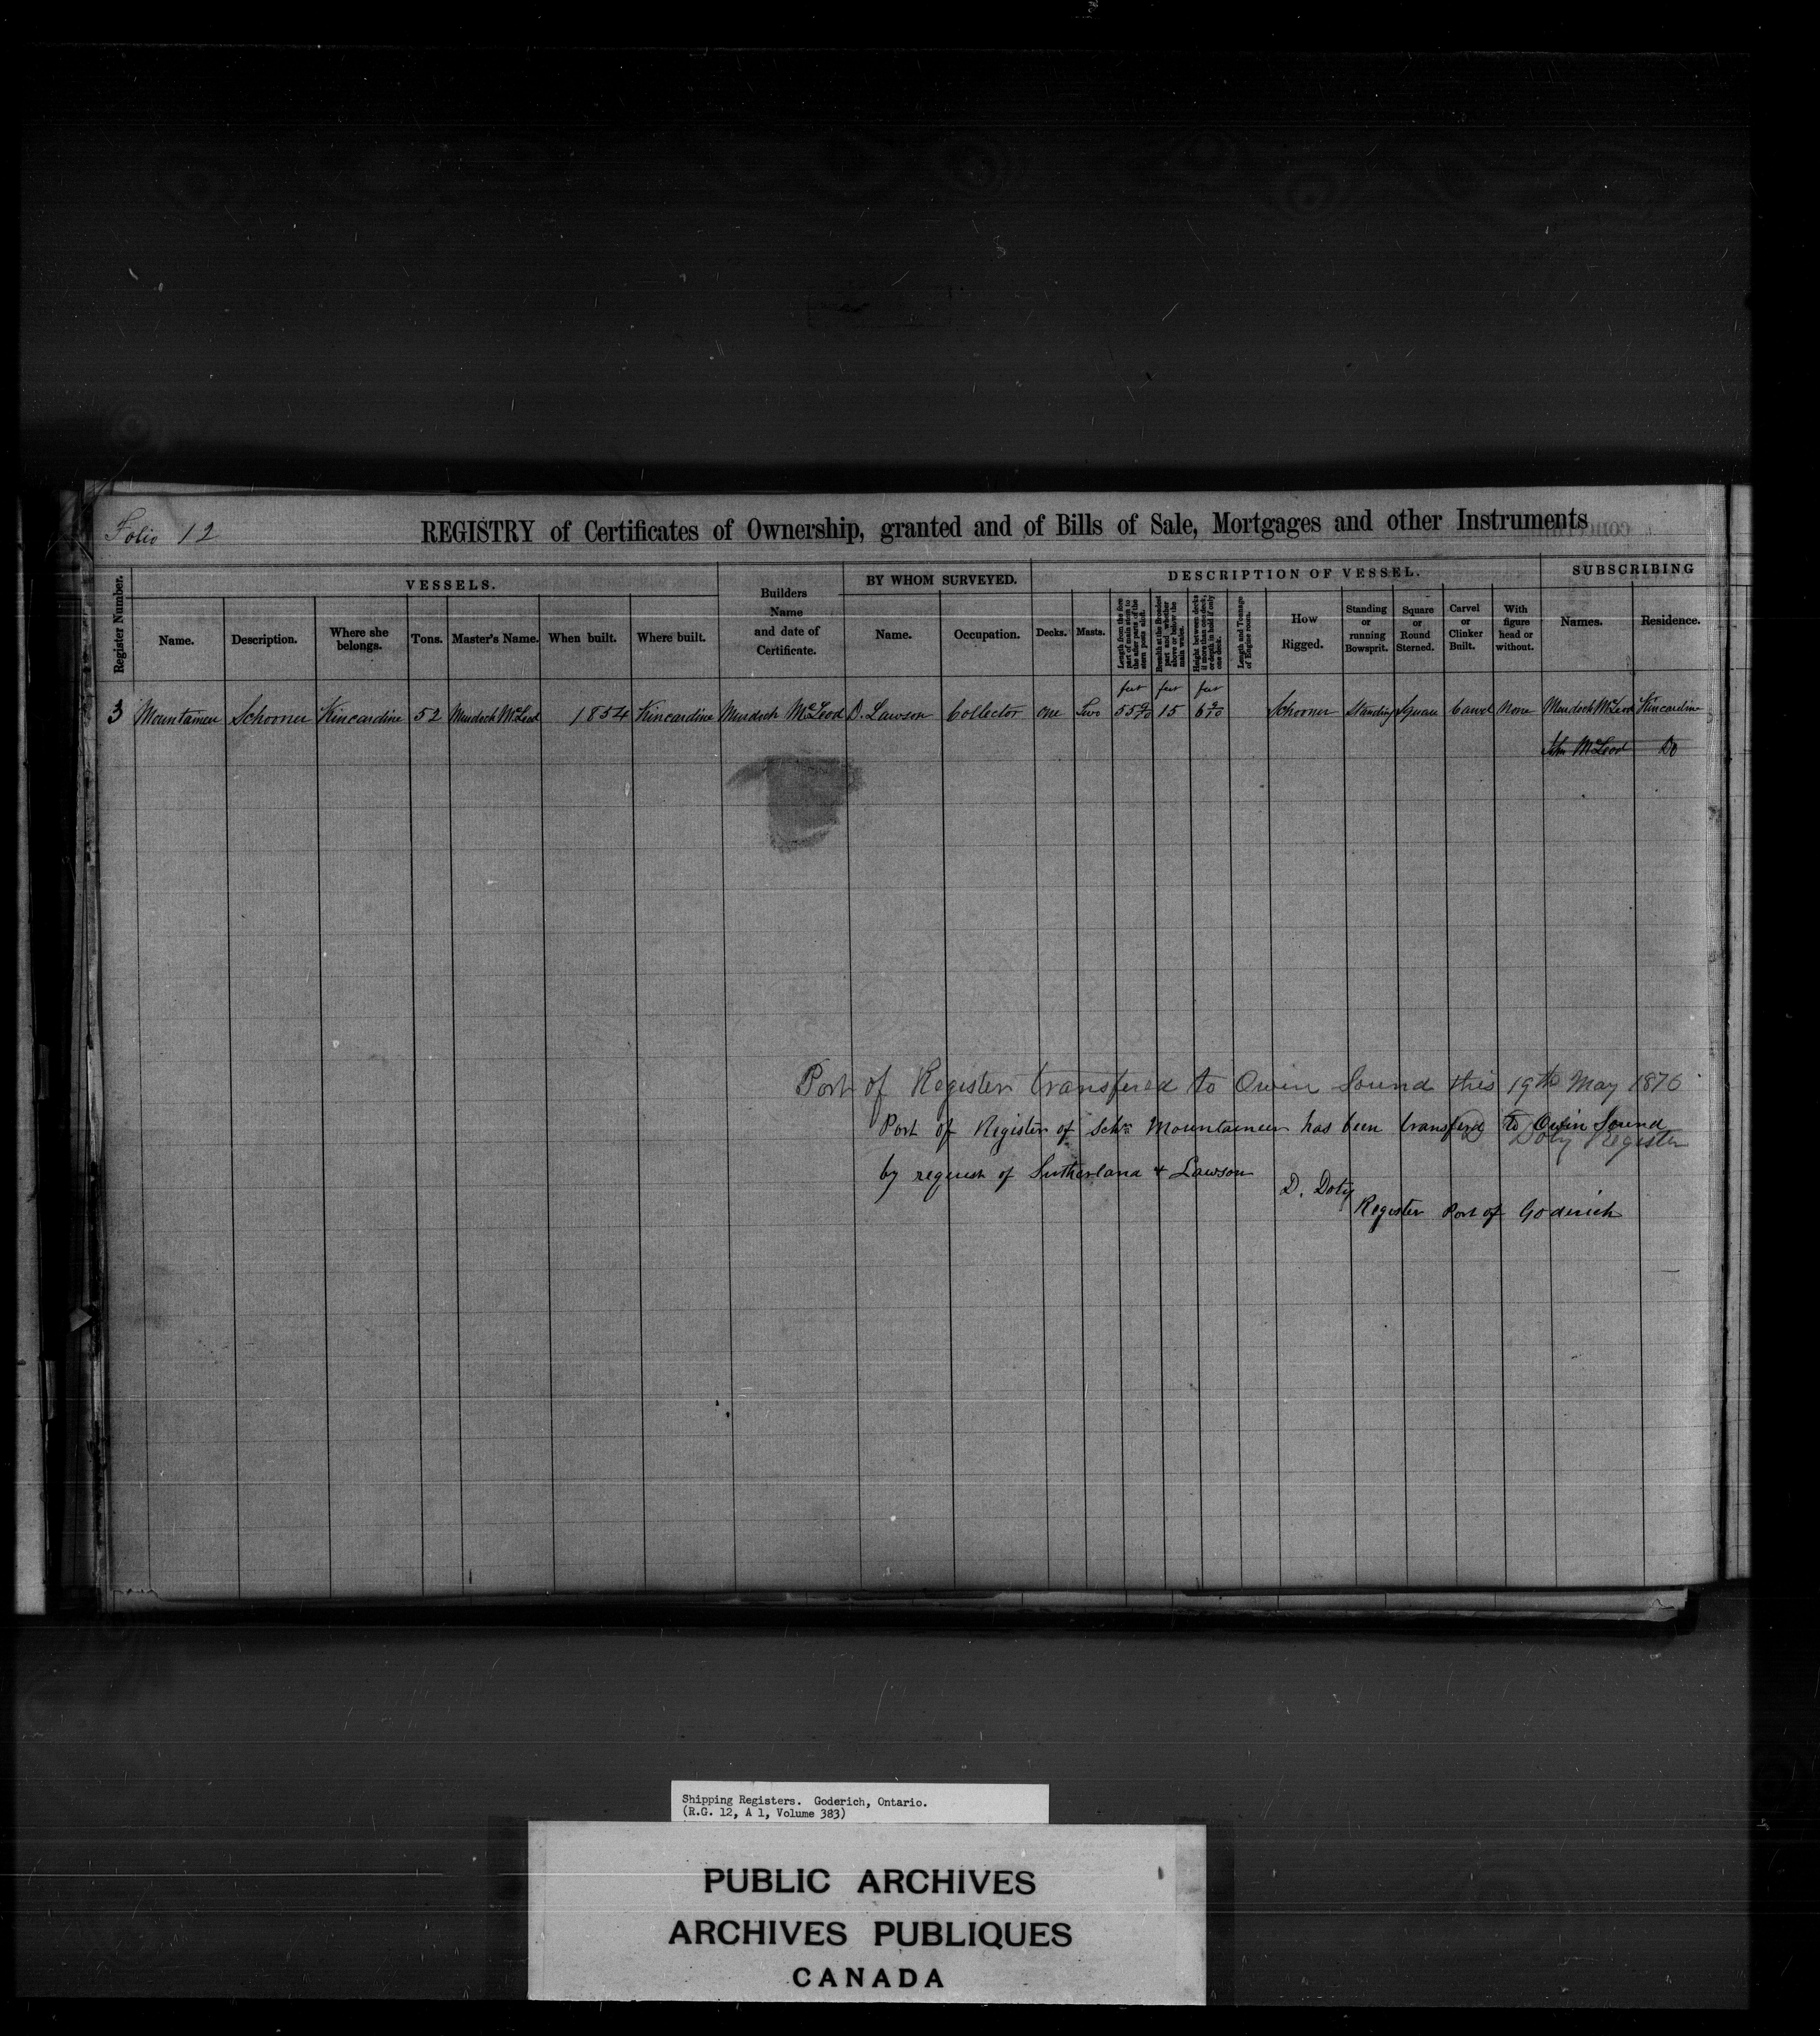 Folio 12
REGISTRY of Certificates of Ownership, granted and of Bills of Sale, Mortgages and other Instruments
Register Number.
VESSELS.
Name.
Description.
Where she belongs.
Tons.
Master's Name.
When built.
Where built.
Builders Name and date of Certificate.
BY WHOM SURVEYED.
Name.
Occupation.
DESCRIPTION OF VESSEL.
Decks.
Masts.
Length from the fore part of main stem to the after part of the stern posts aloft.
Breadth at the Broadest part and whether above or below the main wales.
Height between decks if more than one deck, or depth in hold if only one deck.
Length and Tonnage of Engine room.
How Rigged.
Standing or running Bowsprit.
Square or Round Sterned.
Carvel or Clinker Built.
With figure head or without.
SUBSCRIBING
Names.
Residence.
feet feet feet
3 Mountaineer Schooner Kincardine 52 Murdoch McLeod 1854 Kincardine Murdoch McLeod D. Lawson Collector One Two 55 15 6 Schooner Standing Square Carvel None Murdoch McLeod Kincardine
John McLeod Do
Port of Register transfered to Owen Sound this 19th May 1876
D Doty Register
Port of Register of Schr Mountaineer has been transferd to Owen Sound
by request of Sutherland & Lawson
D. Doty
Register Port of Goderich
Shipping Registers. Goderich, Ontario.
(R.G. 12, A 1, Volume 383)
PUBLIC ARCHIVES
ARCHIVES PUBLIQUES
CANADA